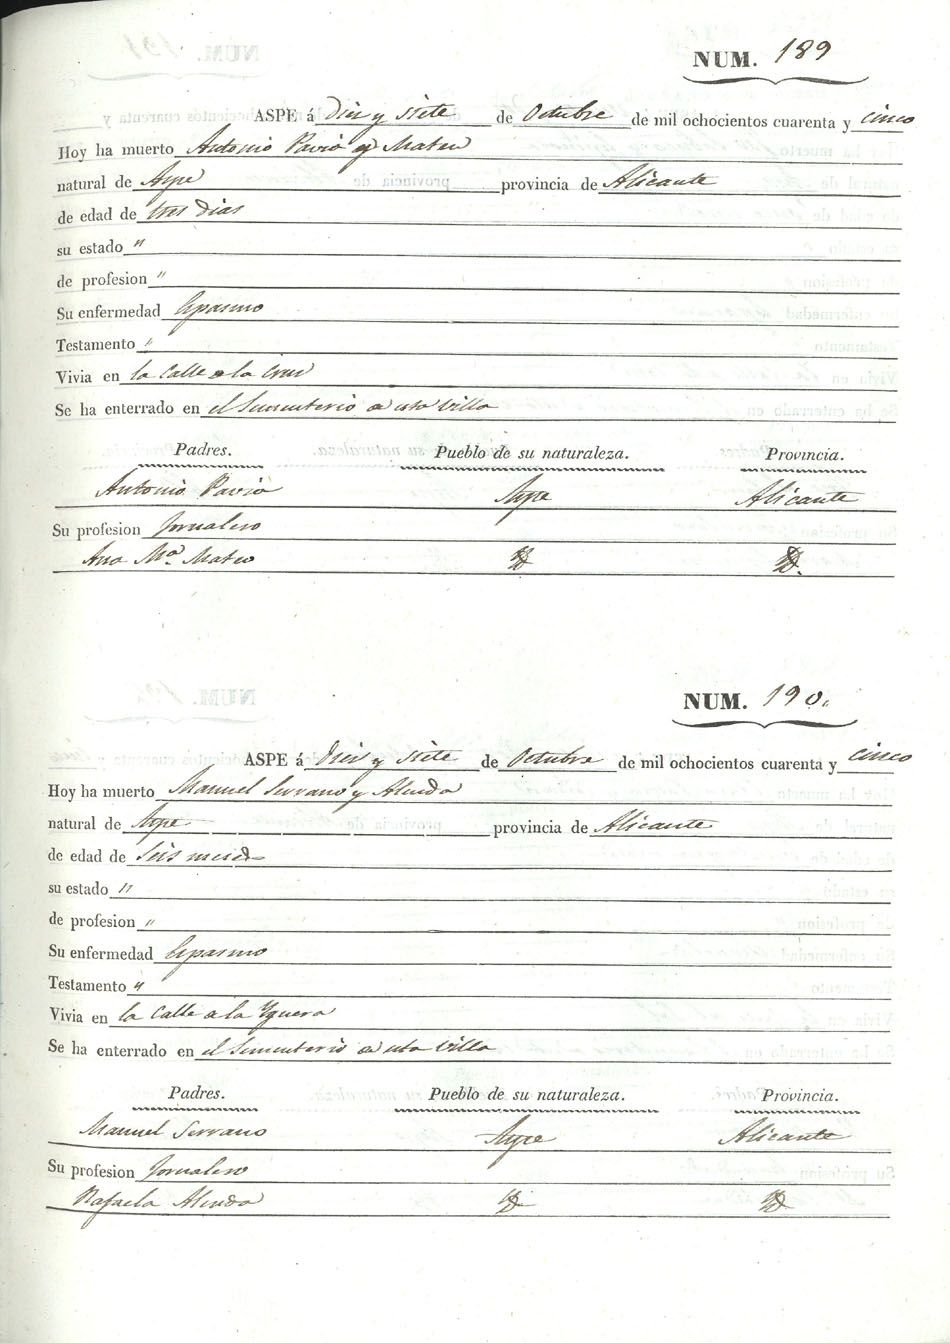 NUM. 189
ASPE á Diez y siete de Octubre de mil ochocientos cuarenta y cinco
Hoy ha muerto Antonio Pavia y Mateu
natural de Aspe provincia de Alicante
de edad de tres dias
su estado "
de profesion "
Su enfermedad Espasmo
Testamento "
Vivia en la Calle de la Cruz
Se ha enterrado en el Simenterio de esta villa
Padres. Pueblo de su naturaleza. Provincia.
Antonio Pavia Aspe Alicante
Su profesion Jornalero
Ana Mª Mateu
NUM. 190.
ASPE á Diez y siete de Octubre de mil ochocientos cuarenta y cinco
Hoy ha muerto Manuel Serrano y Alenda
natural de Aspe provincia de Alicante
de edad de seis meses
su estado "
de profesion "
Su enfermedad Espasmo
Testamento "
Vivia en la Calle de la Yguera
Se ha enterrado en el Simenterio de esta villa
Padres. Pueblo de su naturaleza. Provincia.
Manuel Serrano Aspe Alicante
Su profesion Jornalero
Rafaela Alenda